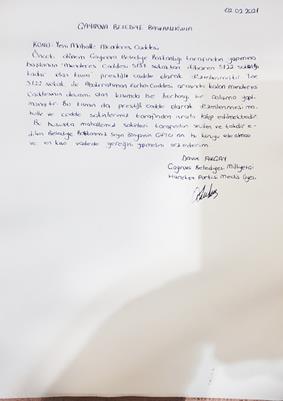 02.02.2021
ÇAYIROVA BELEDİYE BAŞKANLIĞINA
KONU: Yeni Mahalle Menderes Caddesi
Önceki dönem Çayırova Belediye Başkanlığı tarafından yapımına
başlanan Menderes Caddesi 5131 sokaktan itibaren 5122 sokağa
kadar olan kısmı prestijli cadde olarak düzenlenmiştir.
5122 sokak ile Abdurrahman caddesi arasında kalan menderes
Caddesinin devamı olan kısımda ise herhangi bir çalışma yapıl-
mamıştır. Bu kısmın da prestijli cadde olarak düzenlenmesi ma-
halle ve cadde sakinlerimiz tarafından ısrarla talep edilmektedir.
Bu hususta mahallemiz sakinleri tarafından sevilen ve takdir e-
dilen Belediye Başkanımız Sayın Bünyamin ÇİFTÇİ'nin bu konuyu ele alması
ve en kısa sürede gereğini yapmasını arz ederim.
Çayırova Belediyesi Milliyetçi
Hareket Partisi Meclis Üyesi